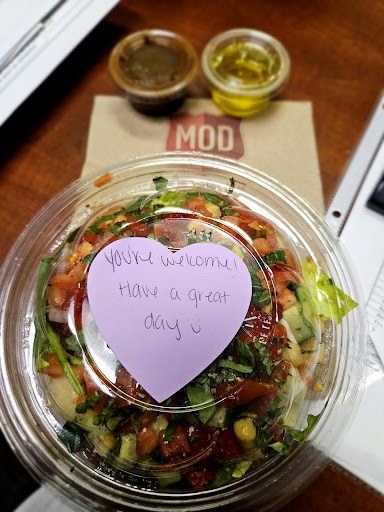 MOD
you're welcome!
Have a great
day :)